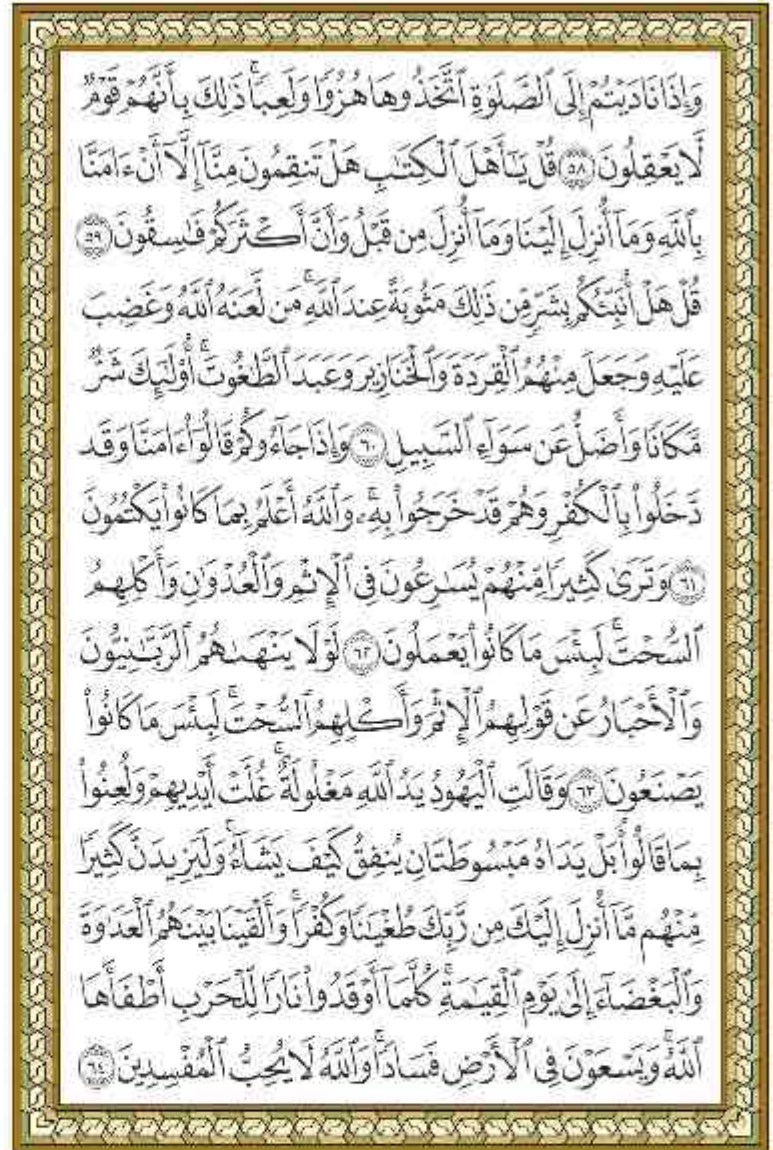 وَإِذَا نَادَيْتُمْ إِلَى ٱلصَّلَوٰةِ ٱتَّخَذُوهَا هُزُوًا وَلَعِبًا ۚ ذَٰلِكَ بِأَنَّهُمْ قَوْمٌ
لَّا يَعْقِلُونَ ٥٨ قُلْ يَـٰٓأَهْلَ ٱلْكِتَـٰبِ هَلْ تَنقِمُونَ مِنَّآ إِلَّآ أَنْ ءَامَنَّا
بِٱللَّهِ وَمَآ أُنزِلَ إِلَيْنَا وَمَآ أُنزِلَ مِن قَبْلُ وَأَنَّ أَكْثَرَكُمْ فَـٰسِقُونَ ٥٩
قُلْ هَلْ أُنَبِّئُكُم بِشَرٍّ مِّن ذَٰلِكَ مَثُوبَةً عِندَ ٱللَّهِ ۚ مَن لَّعَنَهُ ٱللَّهُ وَغَضِبَ
عَلَيْهِ وَجَعَلَ مِنْهُمُ ٱلْقِرَدَةَ وَٱلْخَنَازِيرَ وَعَبَدَ ٱلطَّـٰغُوتَ ۚ أُو۟لَـٰٓئِكَ شَرٌّ
مَّكَانًا وَأَضَلُّ عَن سَوَآءِ ٱلسَّبِيلِ ٦٠ وَإِذَا جَآءُوكُمْ قَالُوٓا۟ ءَامَنَّا وَقَد
دَّخَلُوا۟ بِٱلْكُفْرِ وَهُمْ قَدْ خَرَجُوا۟ بِهِۦ ۚ وَٱللَّهُ أَعْلَمُ بِمَا كَانُوا۟ يَكْتُمُونَ
٦١ وَتَرَىٰ كَثِيرًا مِّنْهُمْ يُسَـٰرِعُونَ فِى ٱلْإِثْمِ وَٱلْعُدْوَٰنِ وَأَكْلِهِمُ
ٱلسُّحْتَ ۚ لَبِئْسَ مَا كَانُوا۟ يَعْمَلُونَ ٦٢ لَوْلَا يَنْهَىٰهُمُ ٱلرَّبَّـٰنِيُّونَ
وَٱلْأَحْبَارُ عَن قَوْلِهِمُ ٱلْإِثْمَ وَأَكْلِهِمُ ٱلسُّحْتَ ۚ لَبِئْسَ مَا كَانُوا۟
يَصْنَعُونَ ٦٣ وَقَالَتِ ٱلْيَهُودُ يَدُ ٱللَّهِ مَغْلُولَةٌ ۚ غُلَّتْ أَيْدِيهِمْ وَلُعِنُوا۟
بِمَا قَالُوا۟ ۘ بَلْ يَدَاهُ مَبْسُوطَتَانِ يُنفِقُ كَيْفَ يَشَآءُ ۚ وَلَيَزِيدَنَّ كَثِيرًا
مِّنْهُم مَّآ أُنزِلَ إِلَيْكَ مِن رَّبِّكَ طُغْيَـٰنًا وَكُفْرًا ۚ وَأَلْقَيْنَا بَيْنَهُمُ ٱلْعَدَٰوَةَ
وَٱلْبَغْضَآءَ إِلَىٰ يَوْمِ ٱلْقِيَـٰمَةِ ۚ كُلَّمَآ أَوْقَدُوا۟ نَارًا لِّلْحَرْبِ أَطْفَأَهَا
ٱللَّهُ ۚ وَيَسْعَوْنَ فِى ٱلْأَرْضِ فَسَادًا ۚ وَٱللَّهُ لَا يُحِبُّ ٱلْمُفْسِدِينَ ٦٤